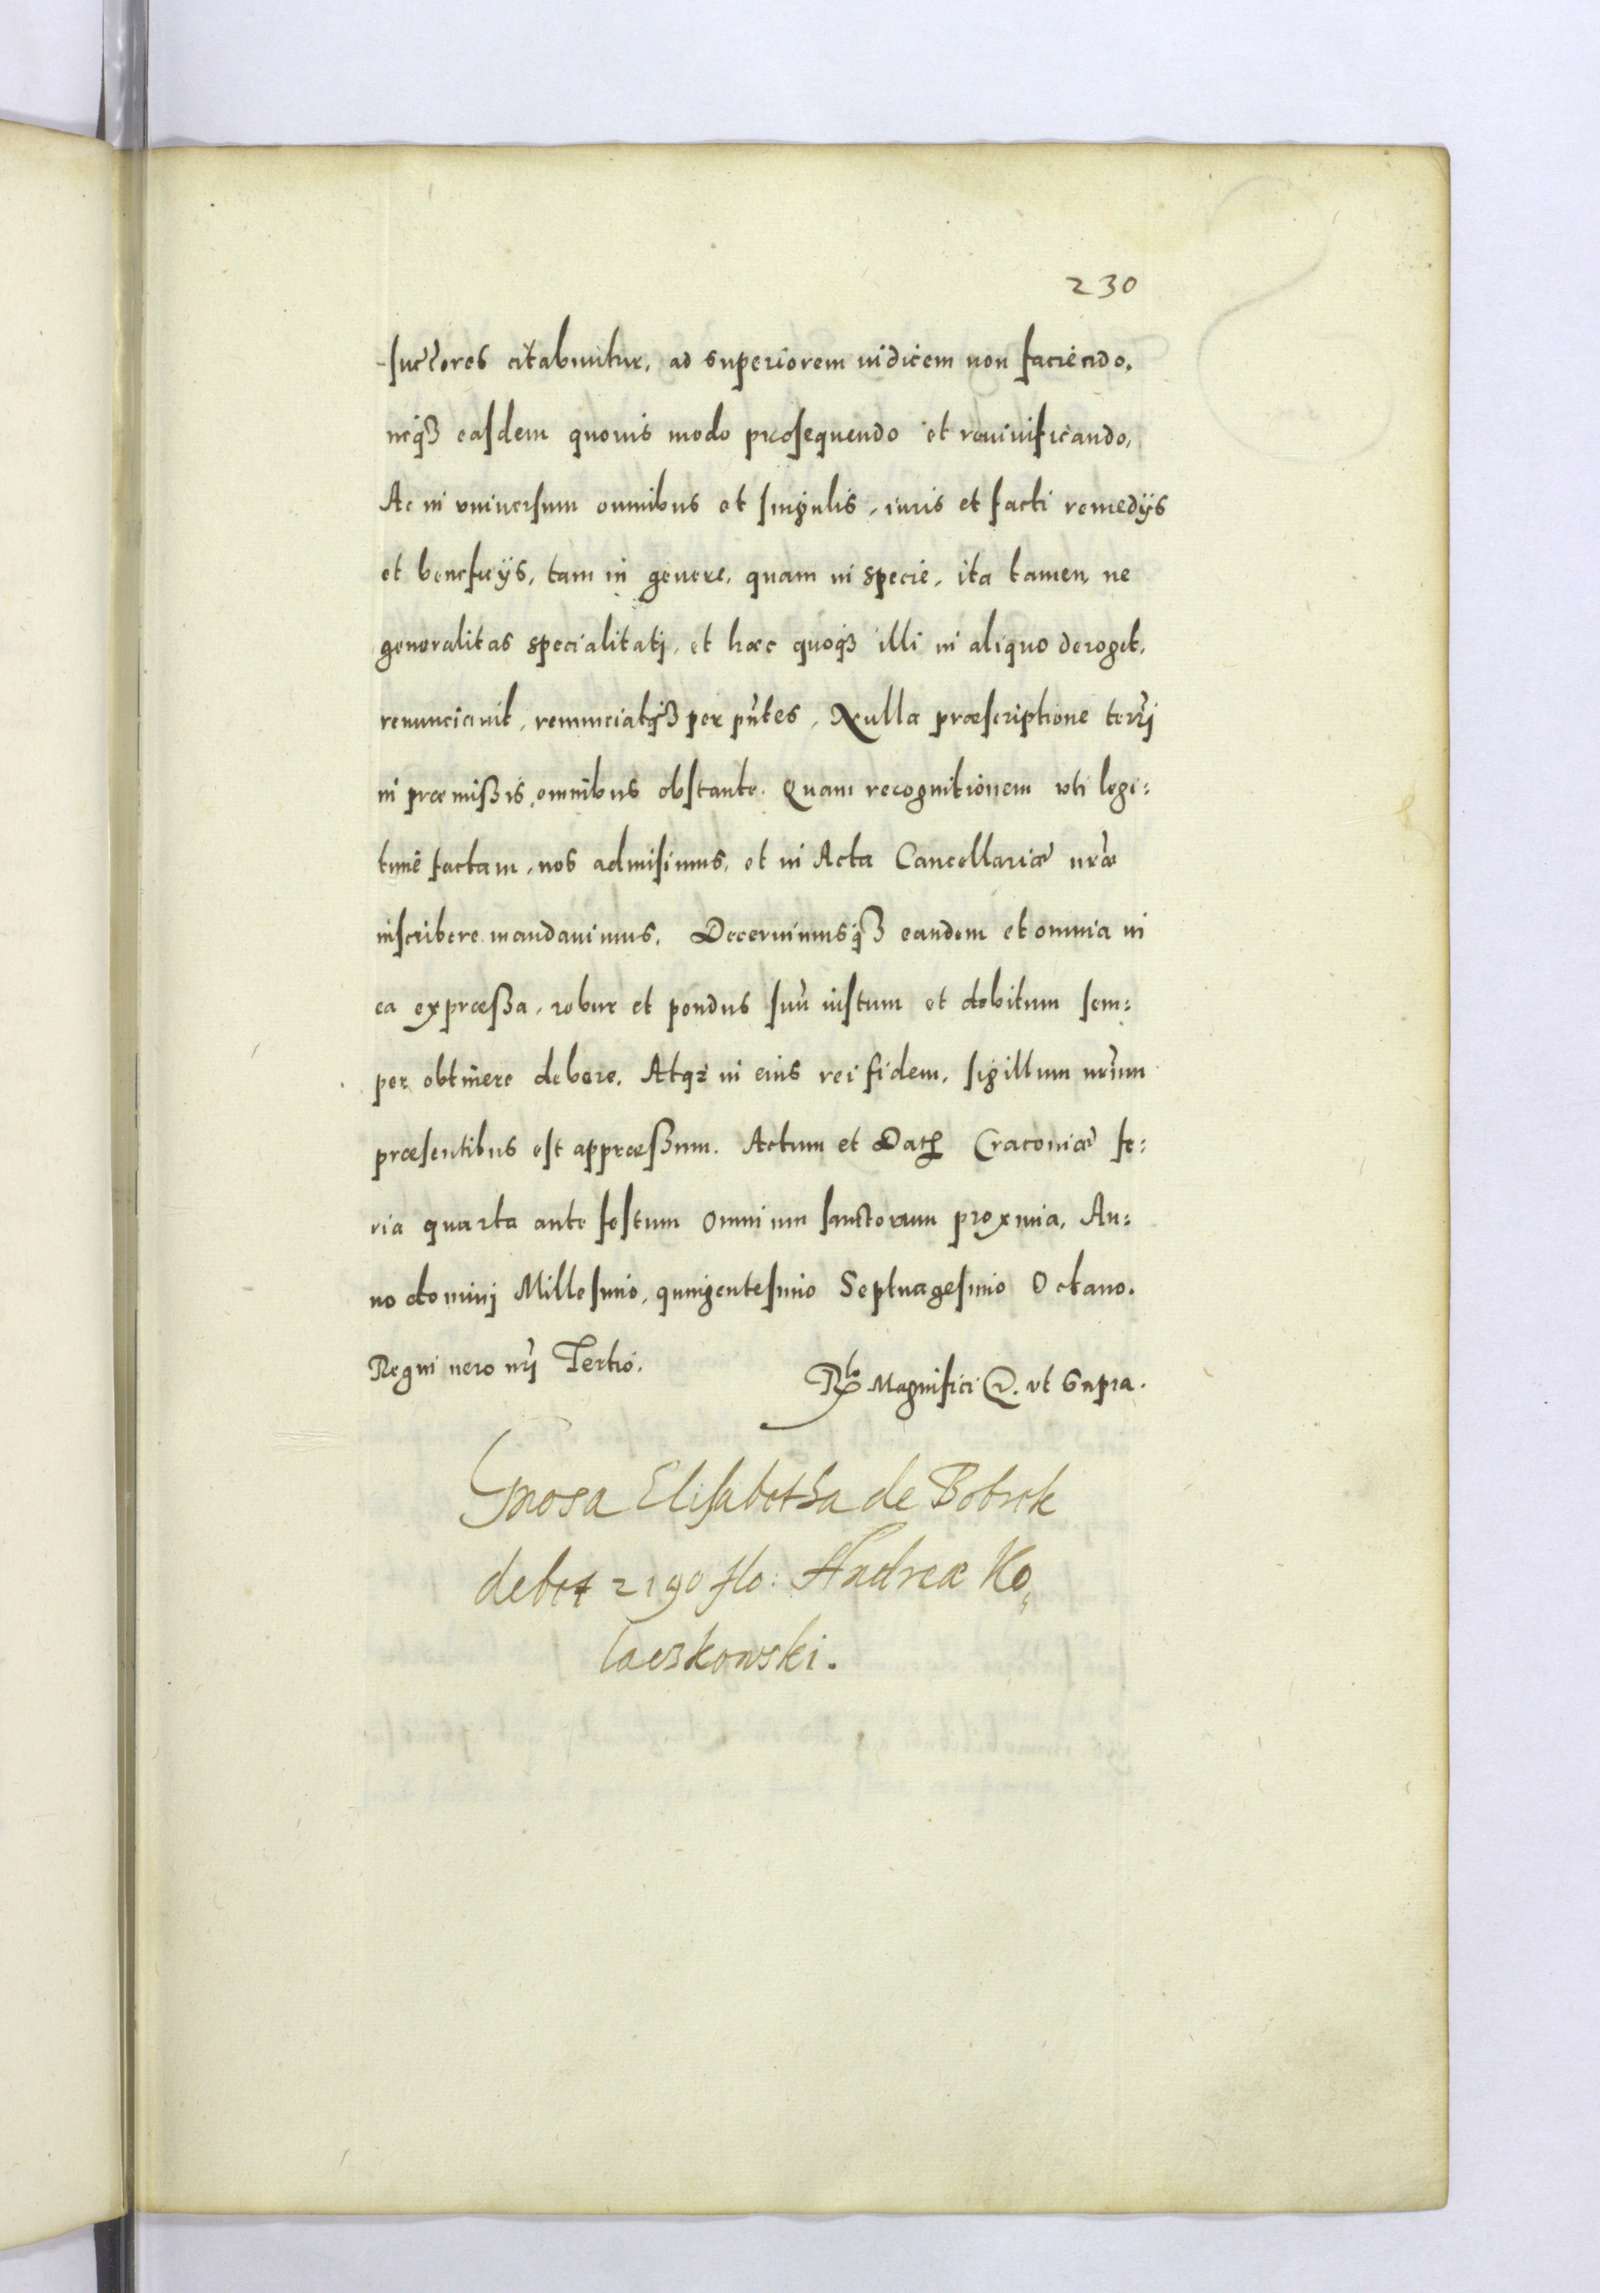 230
-suctores citabuntur, ad superiorem iudicem non faciendo,
neq₃ easdem quouis modo prosequendo et reuiuificando,
Ac in vniuersum omnibus et singulis, iuris et facti remedijs
et beneficijs, tam in genere, quam in specie, ita tamen, ne
generalitas specialitatj, et hæc quoq₃ illi in aliquo deroget,
renunciauit, renunciatq₃ per pñtes, Nulla præscriptione terrj
in præmißis omnibus obstante. Quam recognitionem vti legi:
time factam, nos admisimus, et in Acta Cancellariæ nr̃æ
inscribere mandauimus. Decernimusq₃ eandem et omnia in
ea expræßa, robur et pondus suũ iustum et debitum sem:
per obtinere debere. Atq₃ in eius rei fidem, sigillum nr̃um
præsentibus est appræßum. Actum et Dat̃ Cracouiæ fe:
ria quarta ante festum omnium sanctorum proxima, An:
no dominj Millesimo, quingentesimo Septuagesimo Octauo.
Regni uero nr̃j Tertio.
R̃lo Magnifici D. vt Supra.
Gnosa Elisabetha de Bobrek
debet 2190 flo: Andreæ Ko,
laczkowski.